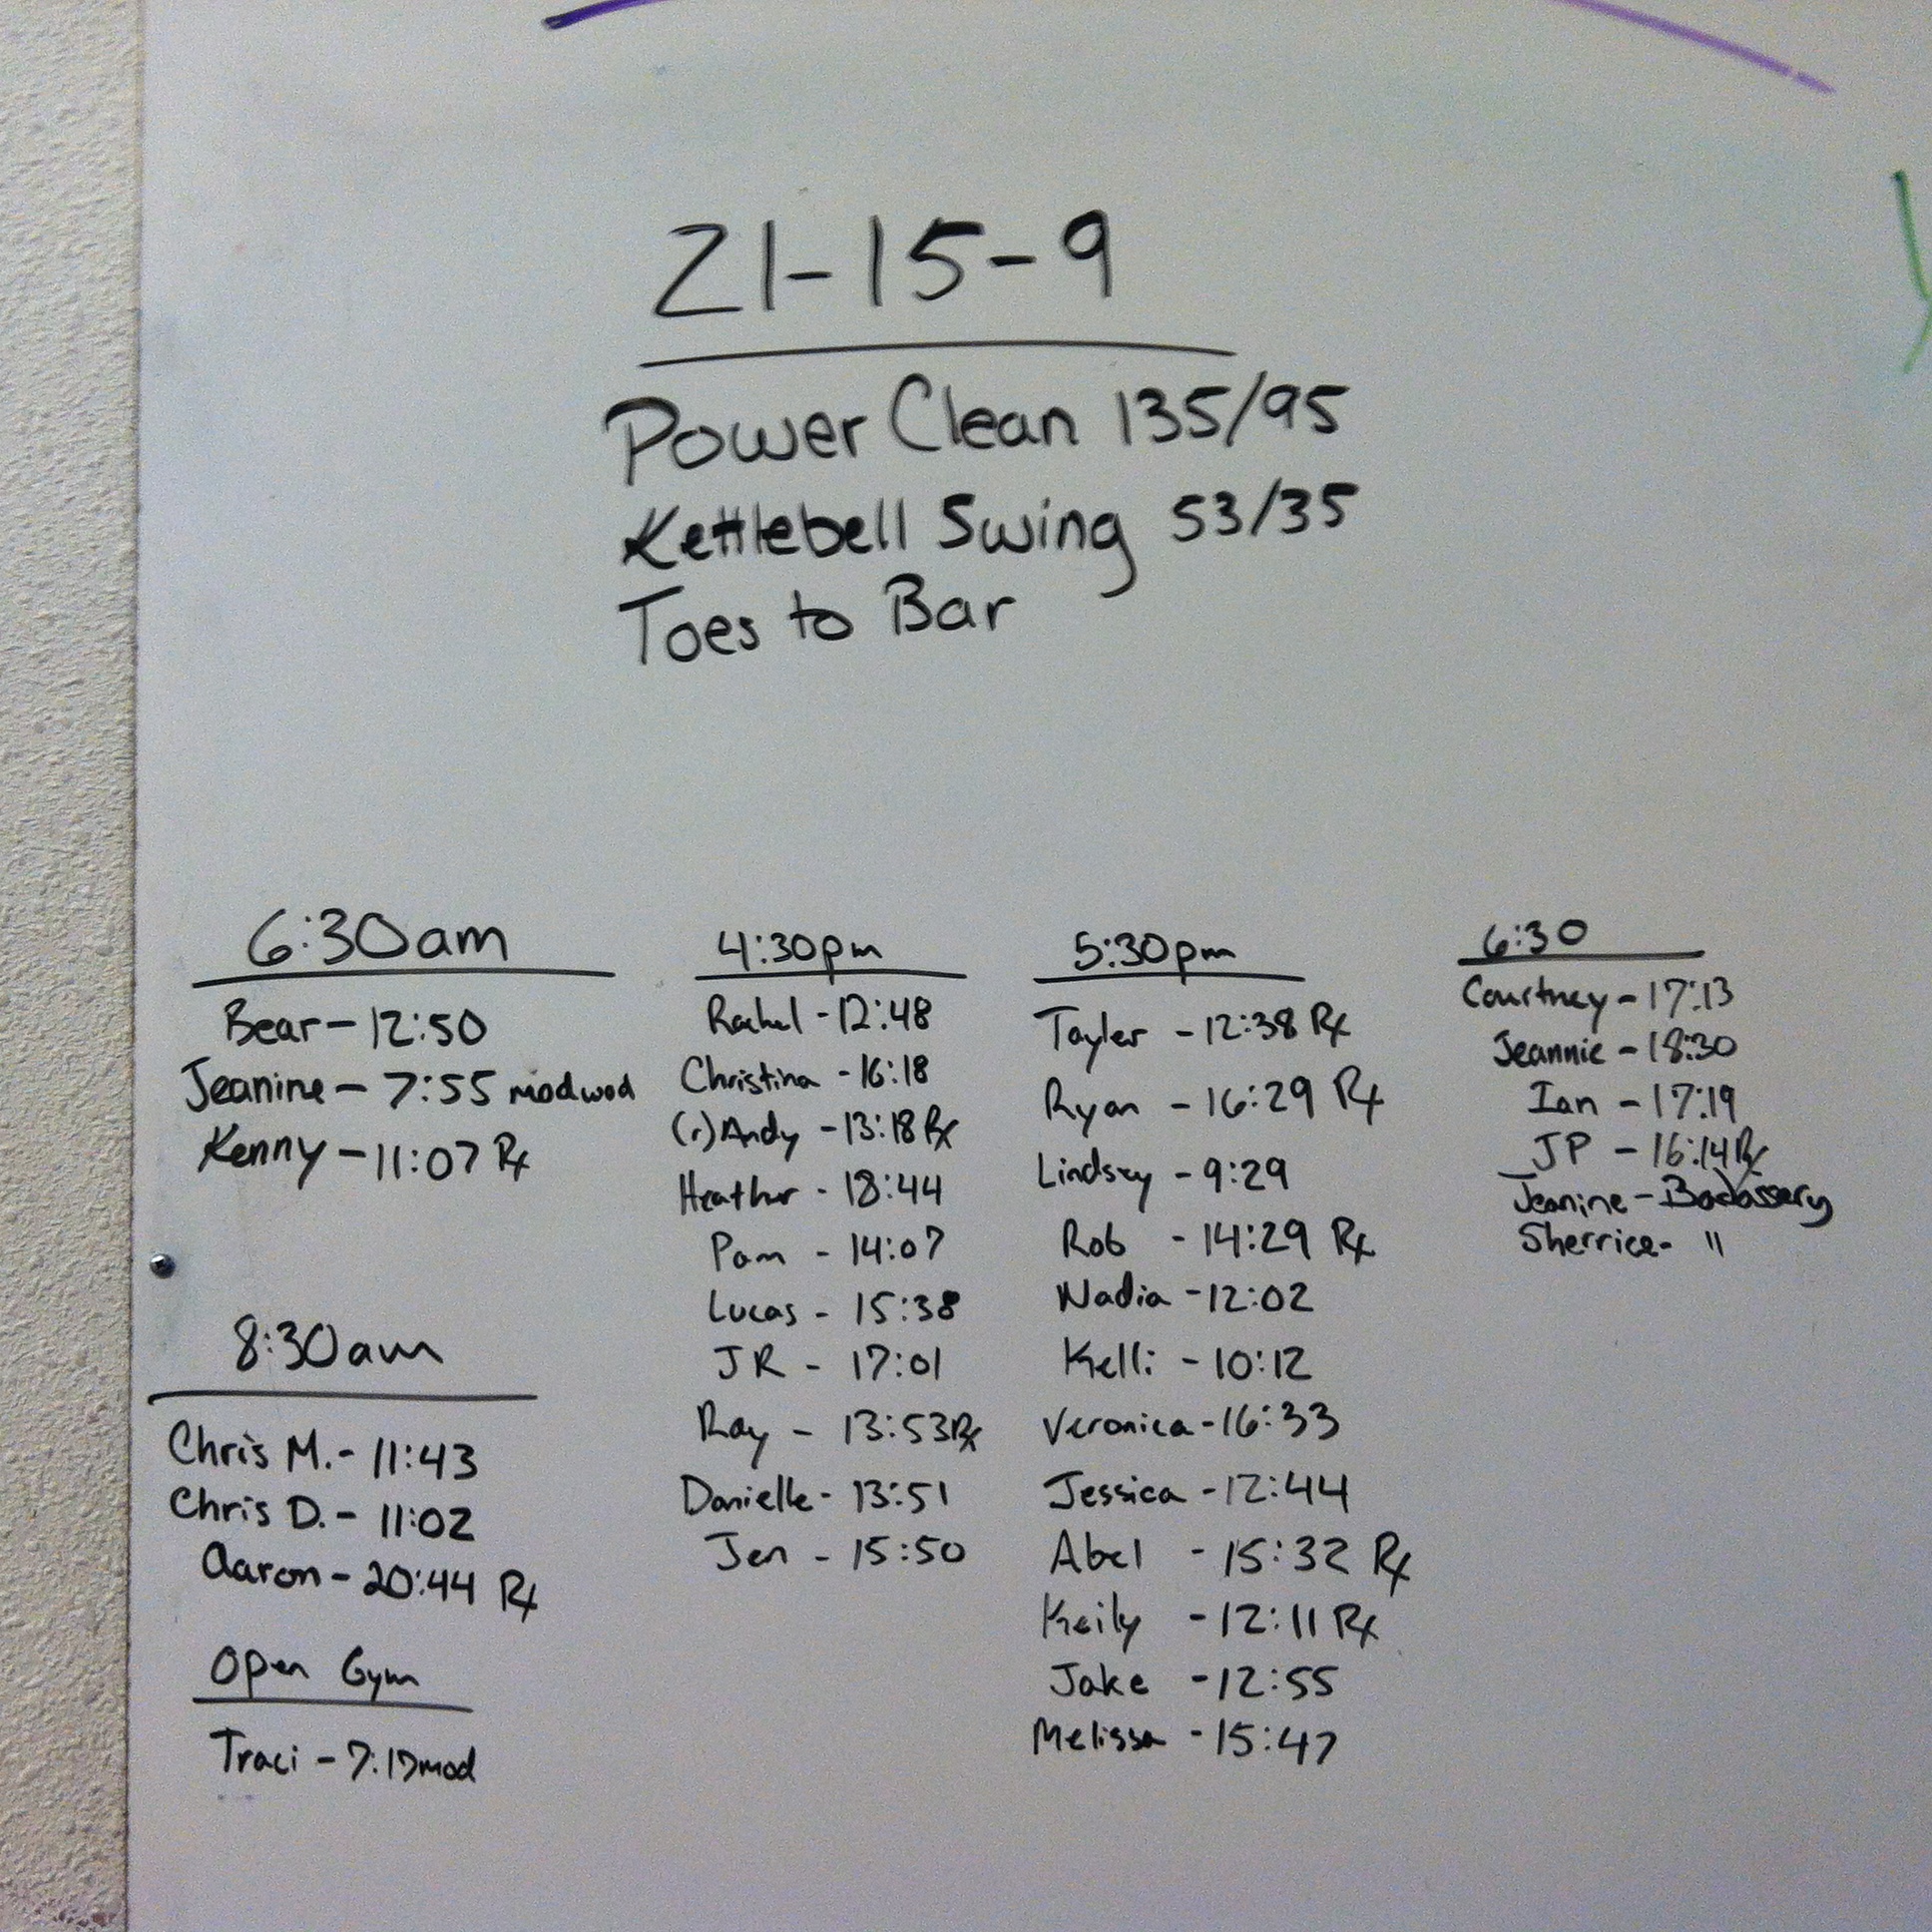 21-15-9
Power Clean 135/95
Kettlebell Swing 53/35
Toes to Bar
6:30am
Bear - 12:50
Jeanine - 7:55 modwod
Kenny - 11:07 Rx
8:30am
Chris M. - 11:43
Chris D. - 11:02
Aaron - 20:44 Rx
Open Gym
Traci - 7:17mod
4:30pm
Rachel - 12:48
Christina - 16:18
(r)Andy - 13:18 Rx
Heather - 18:44
Pam - 14:07
Lucas - 15:38
JR - 17:01
Ray - 13:53Rx
Danielle - 13:51
Jen - 15:50
5:30pm
Tayler - 12:38 Rx
Ryan - 16:29 Rx
Lindsey - 9:29
Rob - 14:29 Rx
Nadia - 12:02
Kelli - 10:12
Veronica - 16:33
Jessica - 12:44
Abel - 15:32 Rx
Keily - 12:11 Rx
Jake - 12:55
Melissa - 15:47
6:30
Courtney - 17:13
Jeannie - 18:30
Ian - 17:19
JP - 16:14Rx
Jeanine - Badassery
Sherrice - "